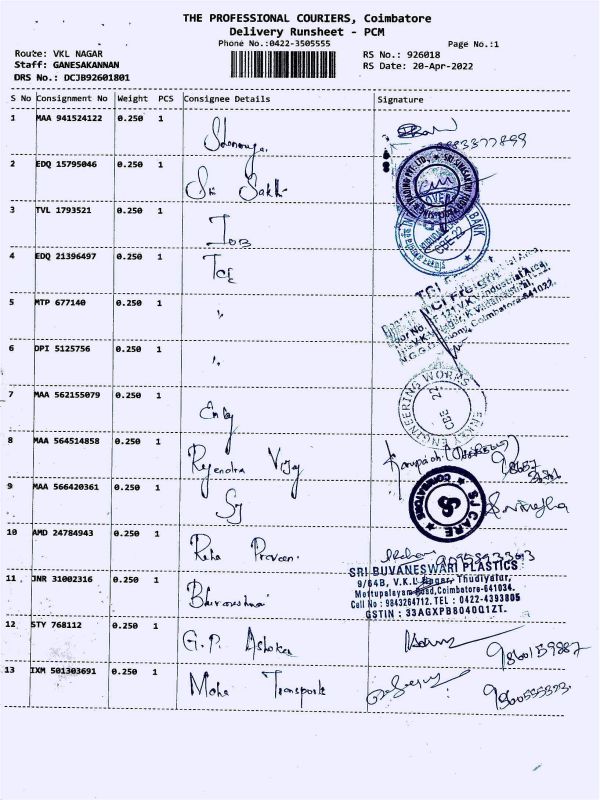 THE PROFESSIONAL COURIERS, Coimbatore
Delivery Runsheet - PCM
Phone No.:0422-3505555
Page No.:1
Route: VKL NAGAR
Staff: GANESAKANNAN
DRS No.: DCJB92601801
RS No.: 926018
RS Date: 20-Apr-2022
S No Consignment No Weight PCS Consignee Details Signature
1 MAA 941524122 0.250 1
2 EDQ 15795046 0.250 1 Sri Sakthi
3 TVL 1793521 0.250 1 IOB
4 EDQ 21396497 0.250 1 TCI
5 MTP 677140 0.250 1 "
6 DPI 5125756 0.250 1 "
7 MAA 562155079 0.250 1
ENGINEERING WORKS
CBE 22
8 MAA 564514858 0.250 1 Rajendra Vijay
9 MAA 566420361 0.250 1 SJ
SJ CARE
COIMBATORE
10 AMD 24784943 0.250 1 Reha Praveen
11 JNR 31002316 0.250 1
SRI BUVANESWARI PLASTICS
9/64B, V.K.L Nagar, Thudiyalur,
Mettupalayam Road, Coimbatore-641034.
Cell No : 9843264712. TEL : 0422-4393805
GSTIN : 33AGXPB8040Q1ZT.
12 STY 768112 0.250 1 G.P. Ashoken 9860159887
13 IXM 501303691 0.250 1 Moha Transports